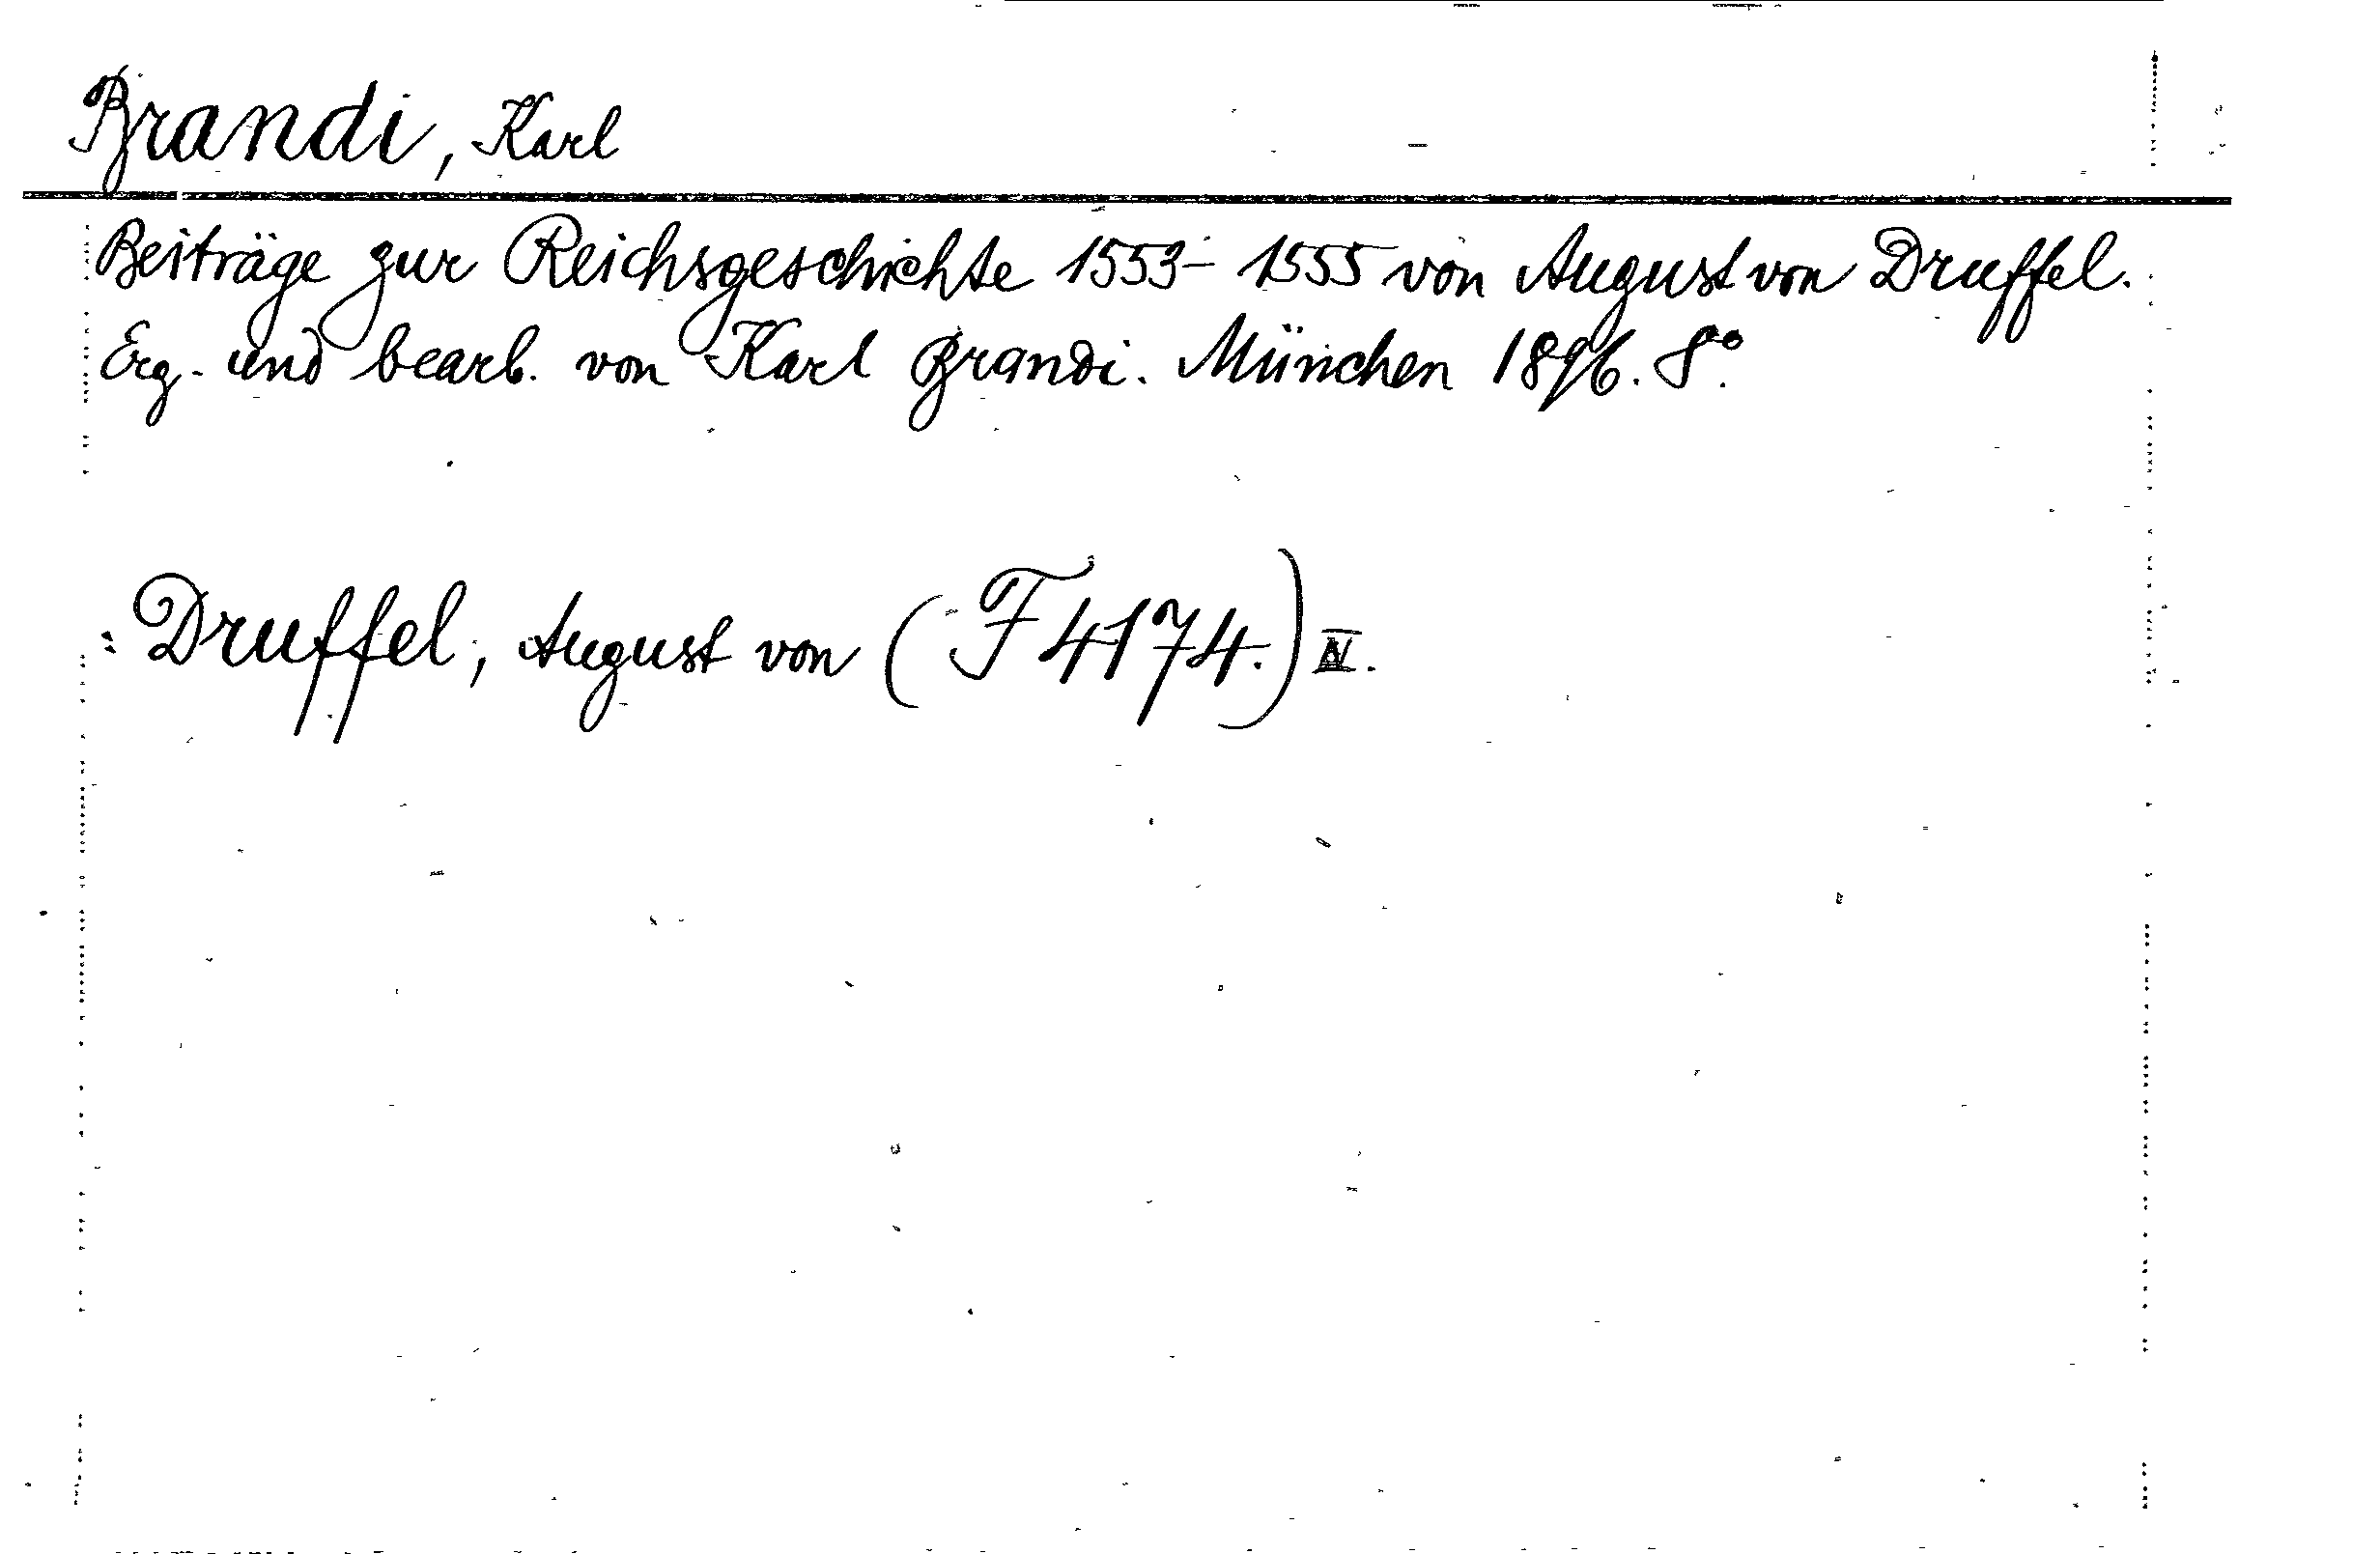 Brandi, Karl
Beiträge zur Reichsgeschichte 1553-1555 von August von Druffel.
Erg. und bearb. von Karl Brandi. München 1896. 8°.
: Druffel, August von (F 4174.) IV.